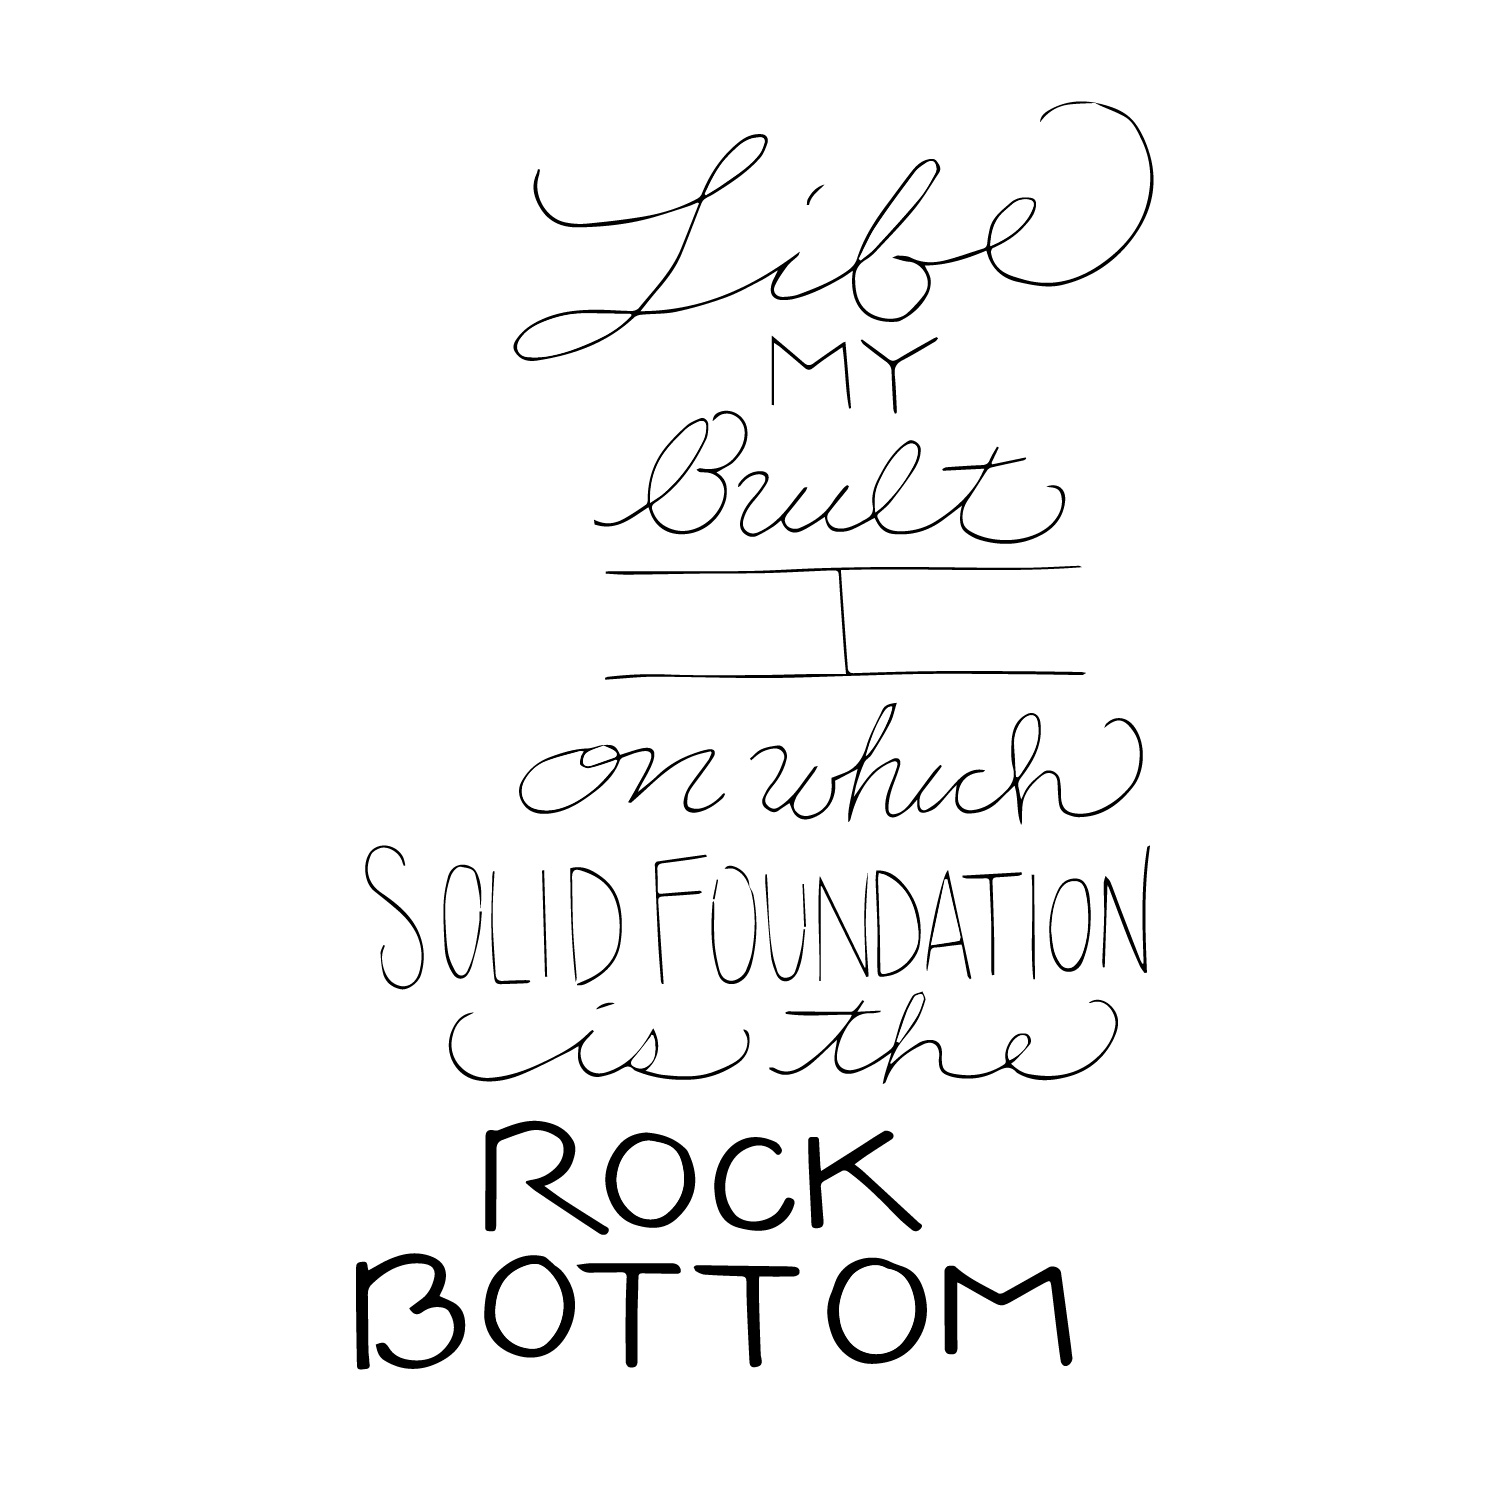 Life
MY
Built
I
on which
SOLID FOUNDATION
is the
ROCK
BOTTOM